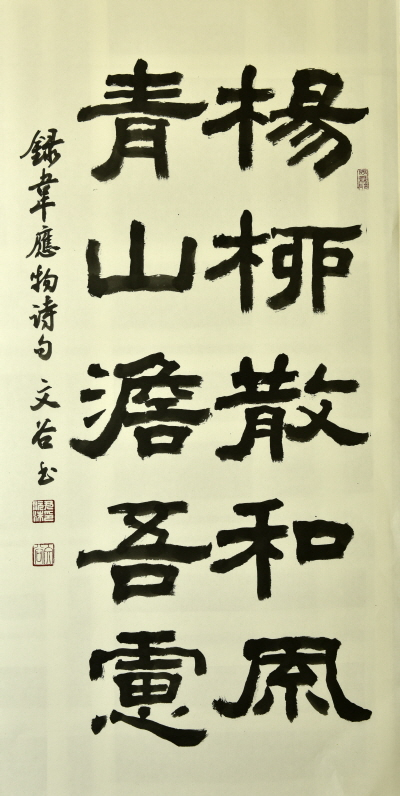 楊柳散和風
青山澹吾慮
録韋應物诗句 文谷书